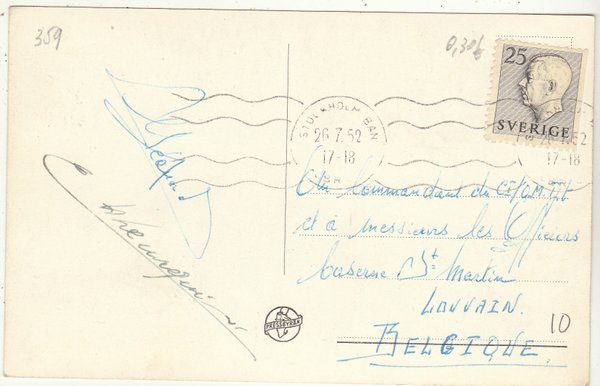 359
0,30
25
SVERIGE
STOCKHOLM BAN
26.7.52
17-18
17-18
Au Commandant du
et à messieurs les Officiers
Caserne St Martin
LOUVAIN.
BELGIQUE
10
PRESSBYRÅN